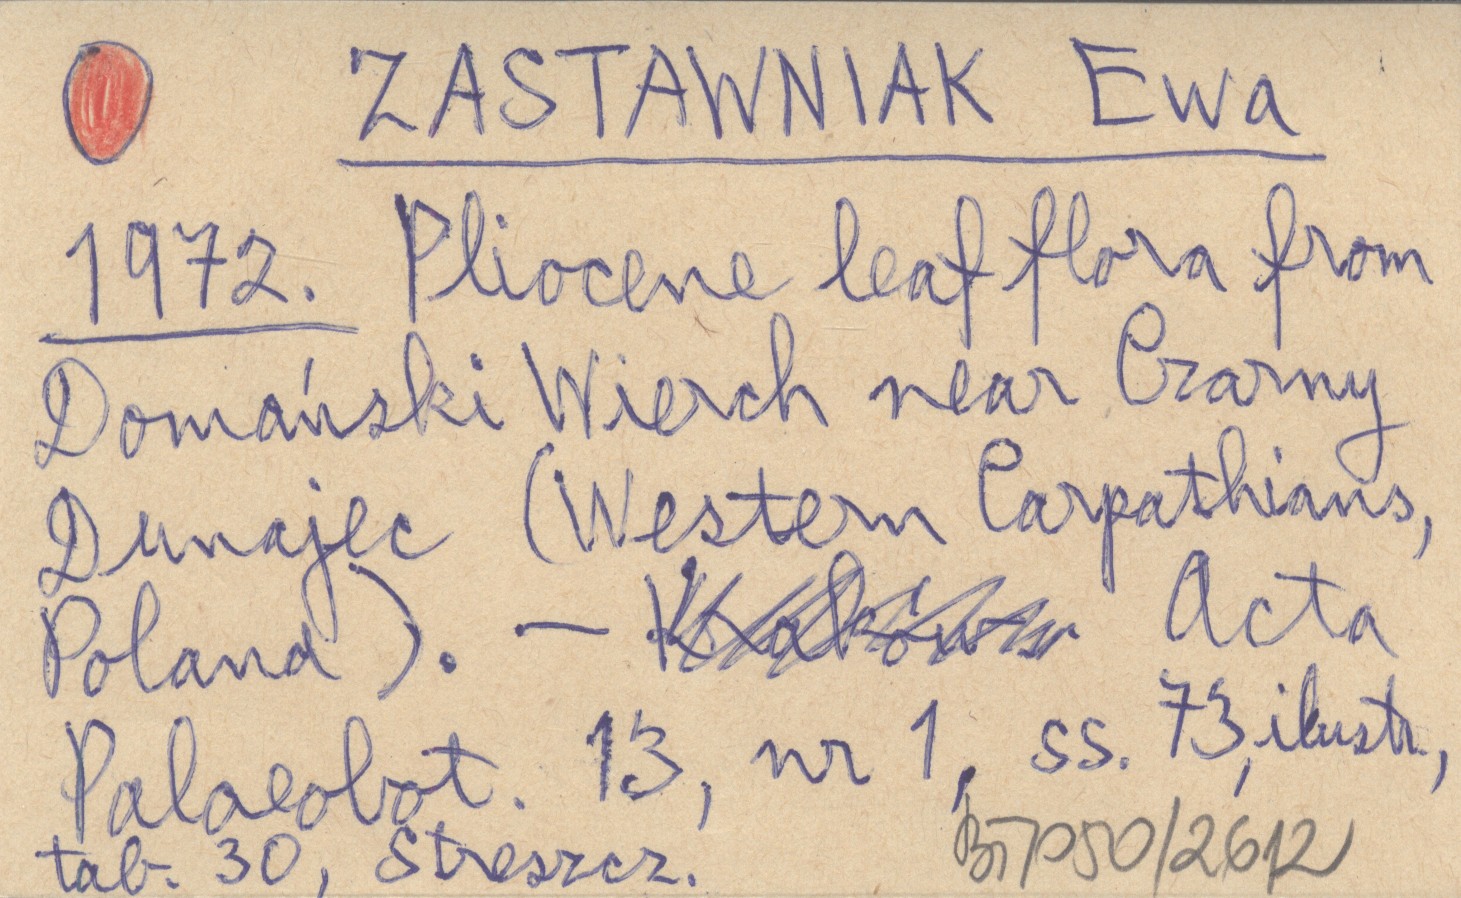 ZASTAWNIAK Ewa
1972. Pliocene leaf flora from
Domański Wierch near Czarny
Dunajec (Western Carpathians,
Poland). – Kraków Acta
Palaeobot. 13, nr 1, ss. 73, ilustr.,
tab. 30, streszcz.